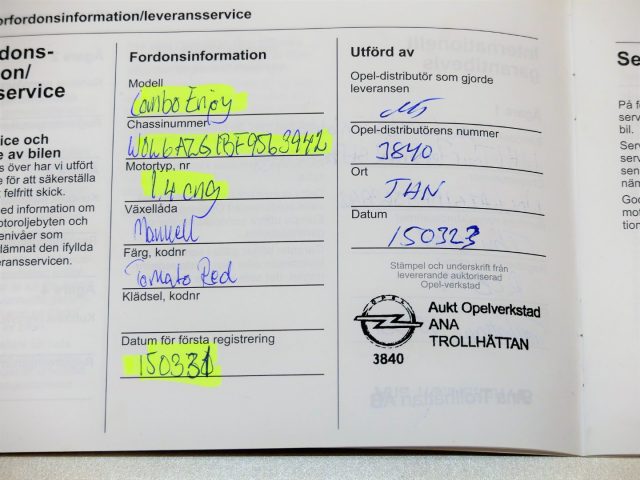 orfordonsinformation/leveransservice
rdons-
on/
service
ice och
e av bilen
s över har vi utfört
e för att säkerställa
t felfritt skick.
ed information om
otoroljebyten och
enivåer som
lämnat den ifyllda
eransservicen.
Fordonsinformation
Modell
Combo Enjoy
Chassinummer
Motortyp, nr
1,4 cng
Växellåda
Manuell
Färg, kodnr
Tomato Red
Klädsel, kodnr
Datum för första registrering
Utförd av
Opel-distributör som gjorde
leveransen
Opel-distributörens nummer
3840
Ort
THN
Datum
150323
Stämpel och underskrift från
levererande auktoriserad
Opel-verkstad
OPEL
Aukt Opelverkstad
ANA
TROLLHÄTTAN
3840
Se
På f
serv
bil.
Serv
serv
send
näm
God
mot
tion